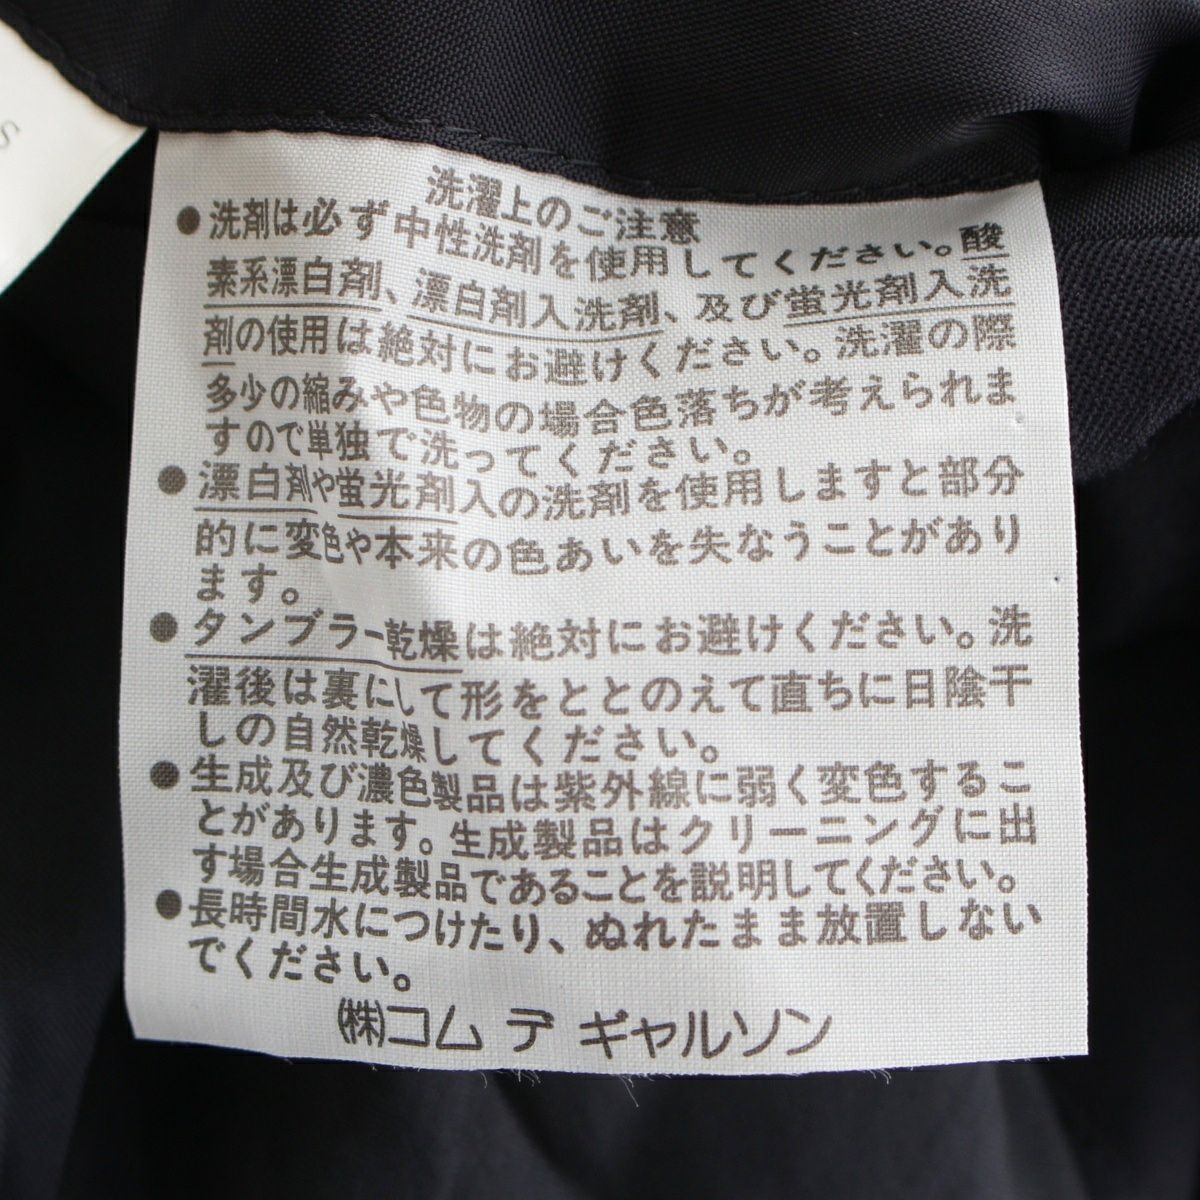 S
洗濯上のご注意
●洗剤は必ず中性洗剤を使用してください。酸
素系漂白剤、漂白剤入洗剤、及び蛍光剤入洗
剤の使用は絶対にお避けください。洗濯の際
多少の縮みや色物の場合色落ちが考えられま
すので単独で洗ってください。
●漂白剤や蛍光剤入の洗剤を使用しますと部分
的に変色や本来の色あいを失なうことがあり
ます。
●タンブラー乾燥は絶対にお避けください。洗
濯後は裏にして形をととのえて直ちに日陰干
しの自然乾燥してください。
●生成及び濃色製品は紫外線に弱く変色するこ
とがあります。生成製品はクリーニングに出
す場合生成製品であることを説明してください。
●長時間水につけたり、ぬれたまま放置しない
でください。
㈱コム デ ギャルソン